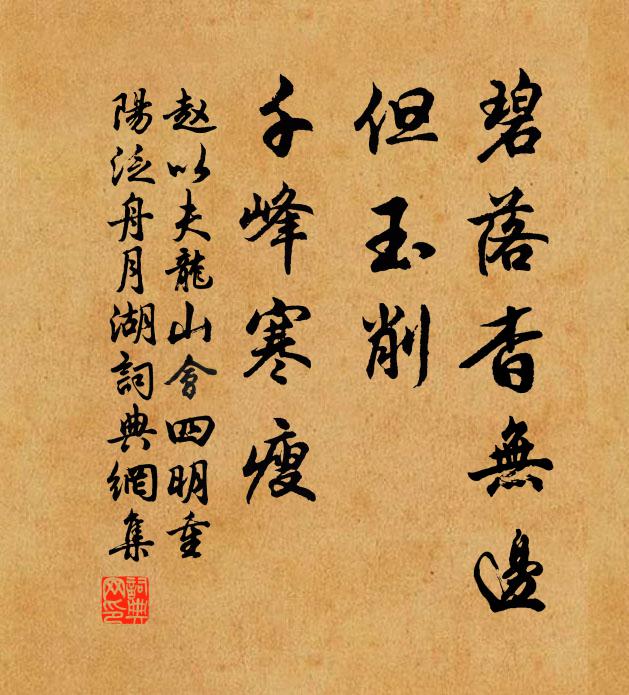 碧落杳無邊
但玉削
千峰寒瘦
赵以夫龍山會四明重
陽泛舟月湖詞典網集
詞典
网印